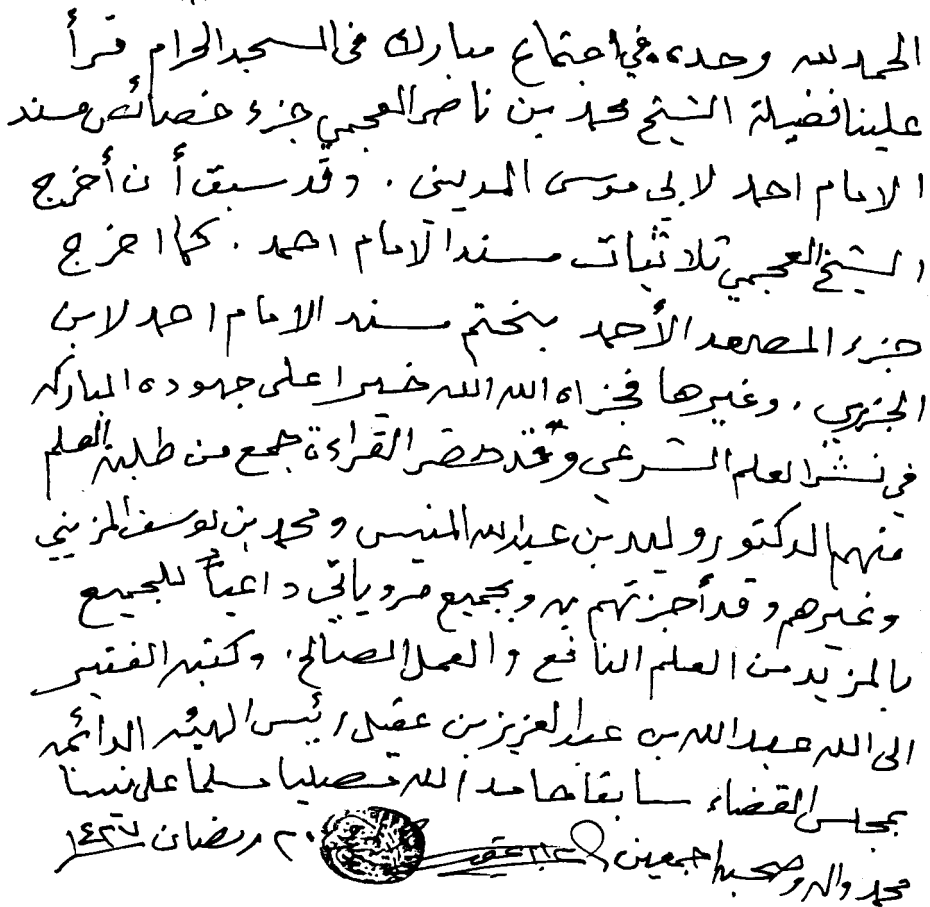 الحمد لله وحده، في اجتماع مبارك في المسجد الحرام قرأ
علينا فضيلة الشيخ محمد بن ناصر العجمي جزء خصائص مسند
الامام احمد لابي موسى المديني . وقد سبق أن أخرج
الشيخ العجمي ثلاثيات مسند الامام احمد . كما اخرج
جزء المصعد الأحمد بختم مسند الامام احمد لابن
الجزري . وغيرها فجزاه الله الله خيرا على جهوده المباركه
في نشر العلم الشرعي وقد حضر القراءة جمع من طلبة العلم
منهم الدكتور وليد بن عبدالله المنيس ومحمد بن يوسف المزيني
وغيرهم وقد أجزتهم به وبجميع مروياتي داعياً للجميع
بالمزيد من العلم النافع والعمل الصالح . وكتبه الفقير
الى الله عبدالله بن عبدالعزيز بن عقيل رئيس الهيئه الدائمه
بمجلس القضاء سابقا حامدا لله مصليا مسلما على نبينا
محمد واله وصحبه اجمعين ٢٠ رمضان ١٤٢٧